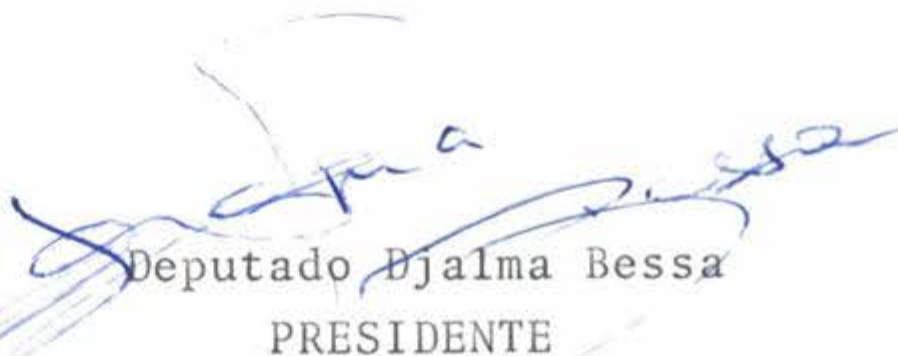 Deputado Djalma Bessa
PRESIDENTE